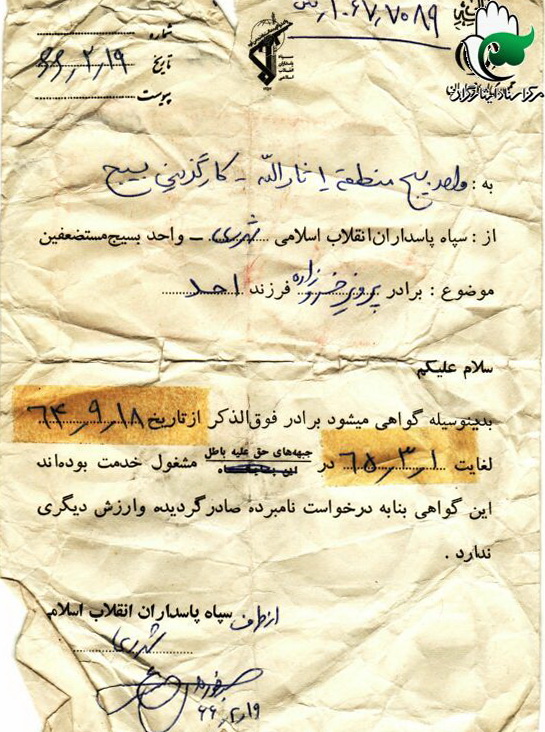 شماره
۱۰۶۷٫۷۰۸۹
تاریخ ۶۶٫۲٫۱۹
پیوست
سپاه پاسداران انقلاب اسلامی
به : واحد بسیج منطقه یا ثارالله - کارگزینی بسیج
از : سپاه پاسداران انقلاب اسلامی شهرری – واحد بسیج مستضعفین
موضوع : برادر پرویز خسروزاده فرزند احد
سلام علیکم
بدینوسیله گواهی میشود برادر فوق‌الذکر از تاریخ ۶۴٫۹٫۱۸
لغایت ۶۵٫۳٫۱ در جبهه‌های حق علیه باطل مشغول خدمت بوده‌اند
این گواهی بنا به درخواست نامبرده صادر گردیده و ارزش دیگری
ندارد .
از طرف سپاه پاسداران انقلاب اسلامی
شهرری
۶۶٫۲٫۱۹